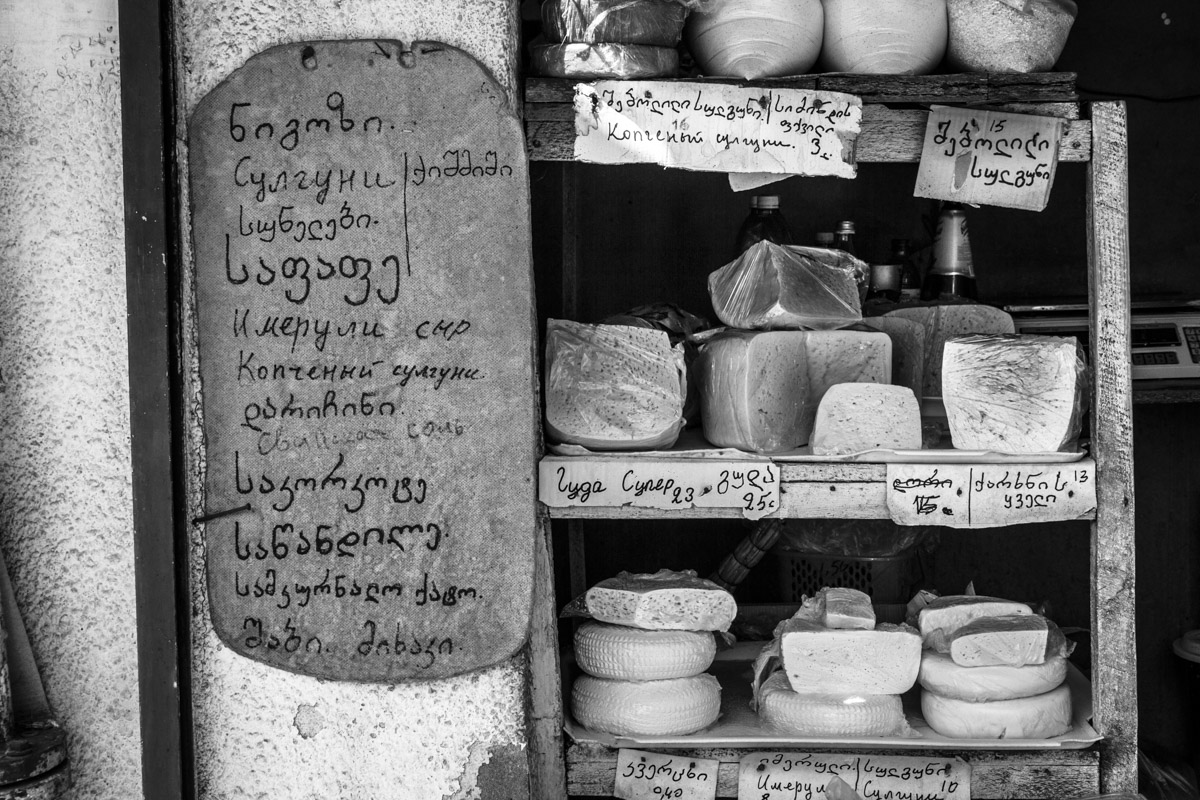 ნიგოზი.
Сулгуни | ქიშმიში
სუნელები.
საფაფე
Имерули сыр
Копченый сулгуни.
დარიჩინი.
соль
საკორკოტე
საწანდილე.
სამკურნალო ქატო.
შაბი. მიხაკი.
შებოლილი სულგუნი. | სიმინდის
ფქვილი
Копченый сулгуни. 3
15
შებოლილი
სულგუნი
Гуда Супер 23. გუდა
25
ღორი | ქარხნის 13
15. ყველი
კვერცხი
იმერული | სულგუნი
Имерули | Сулгуни 10